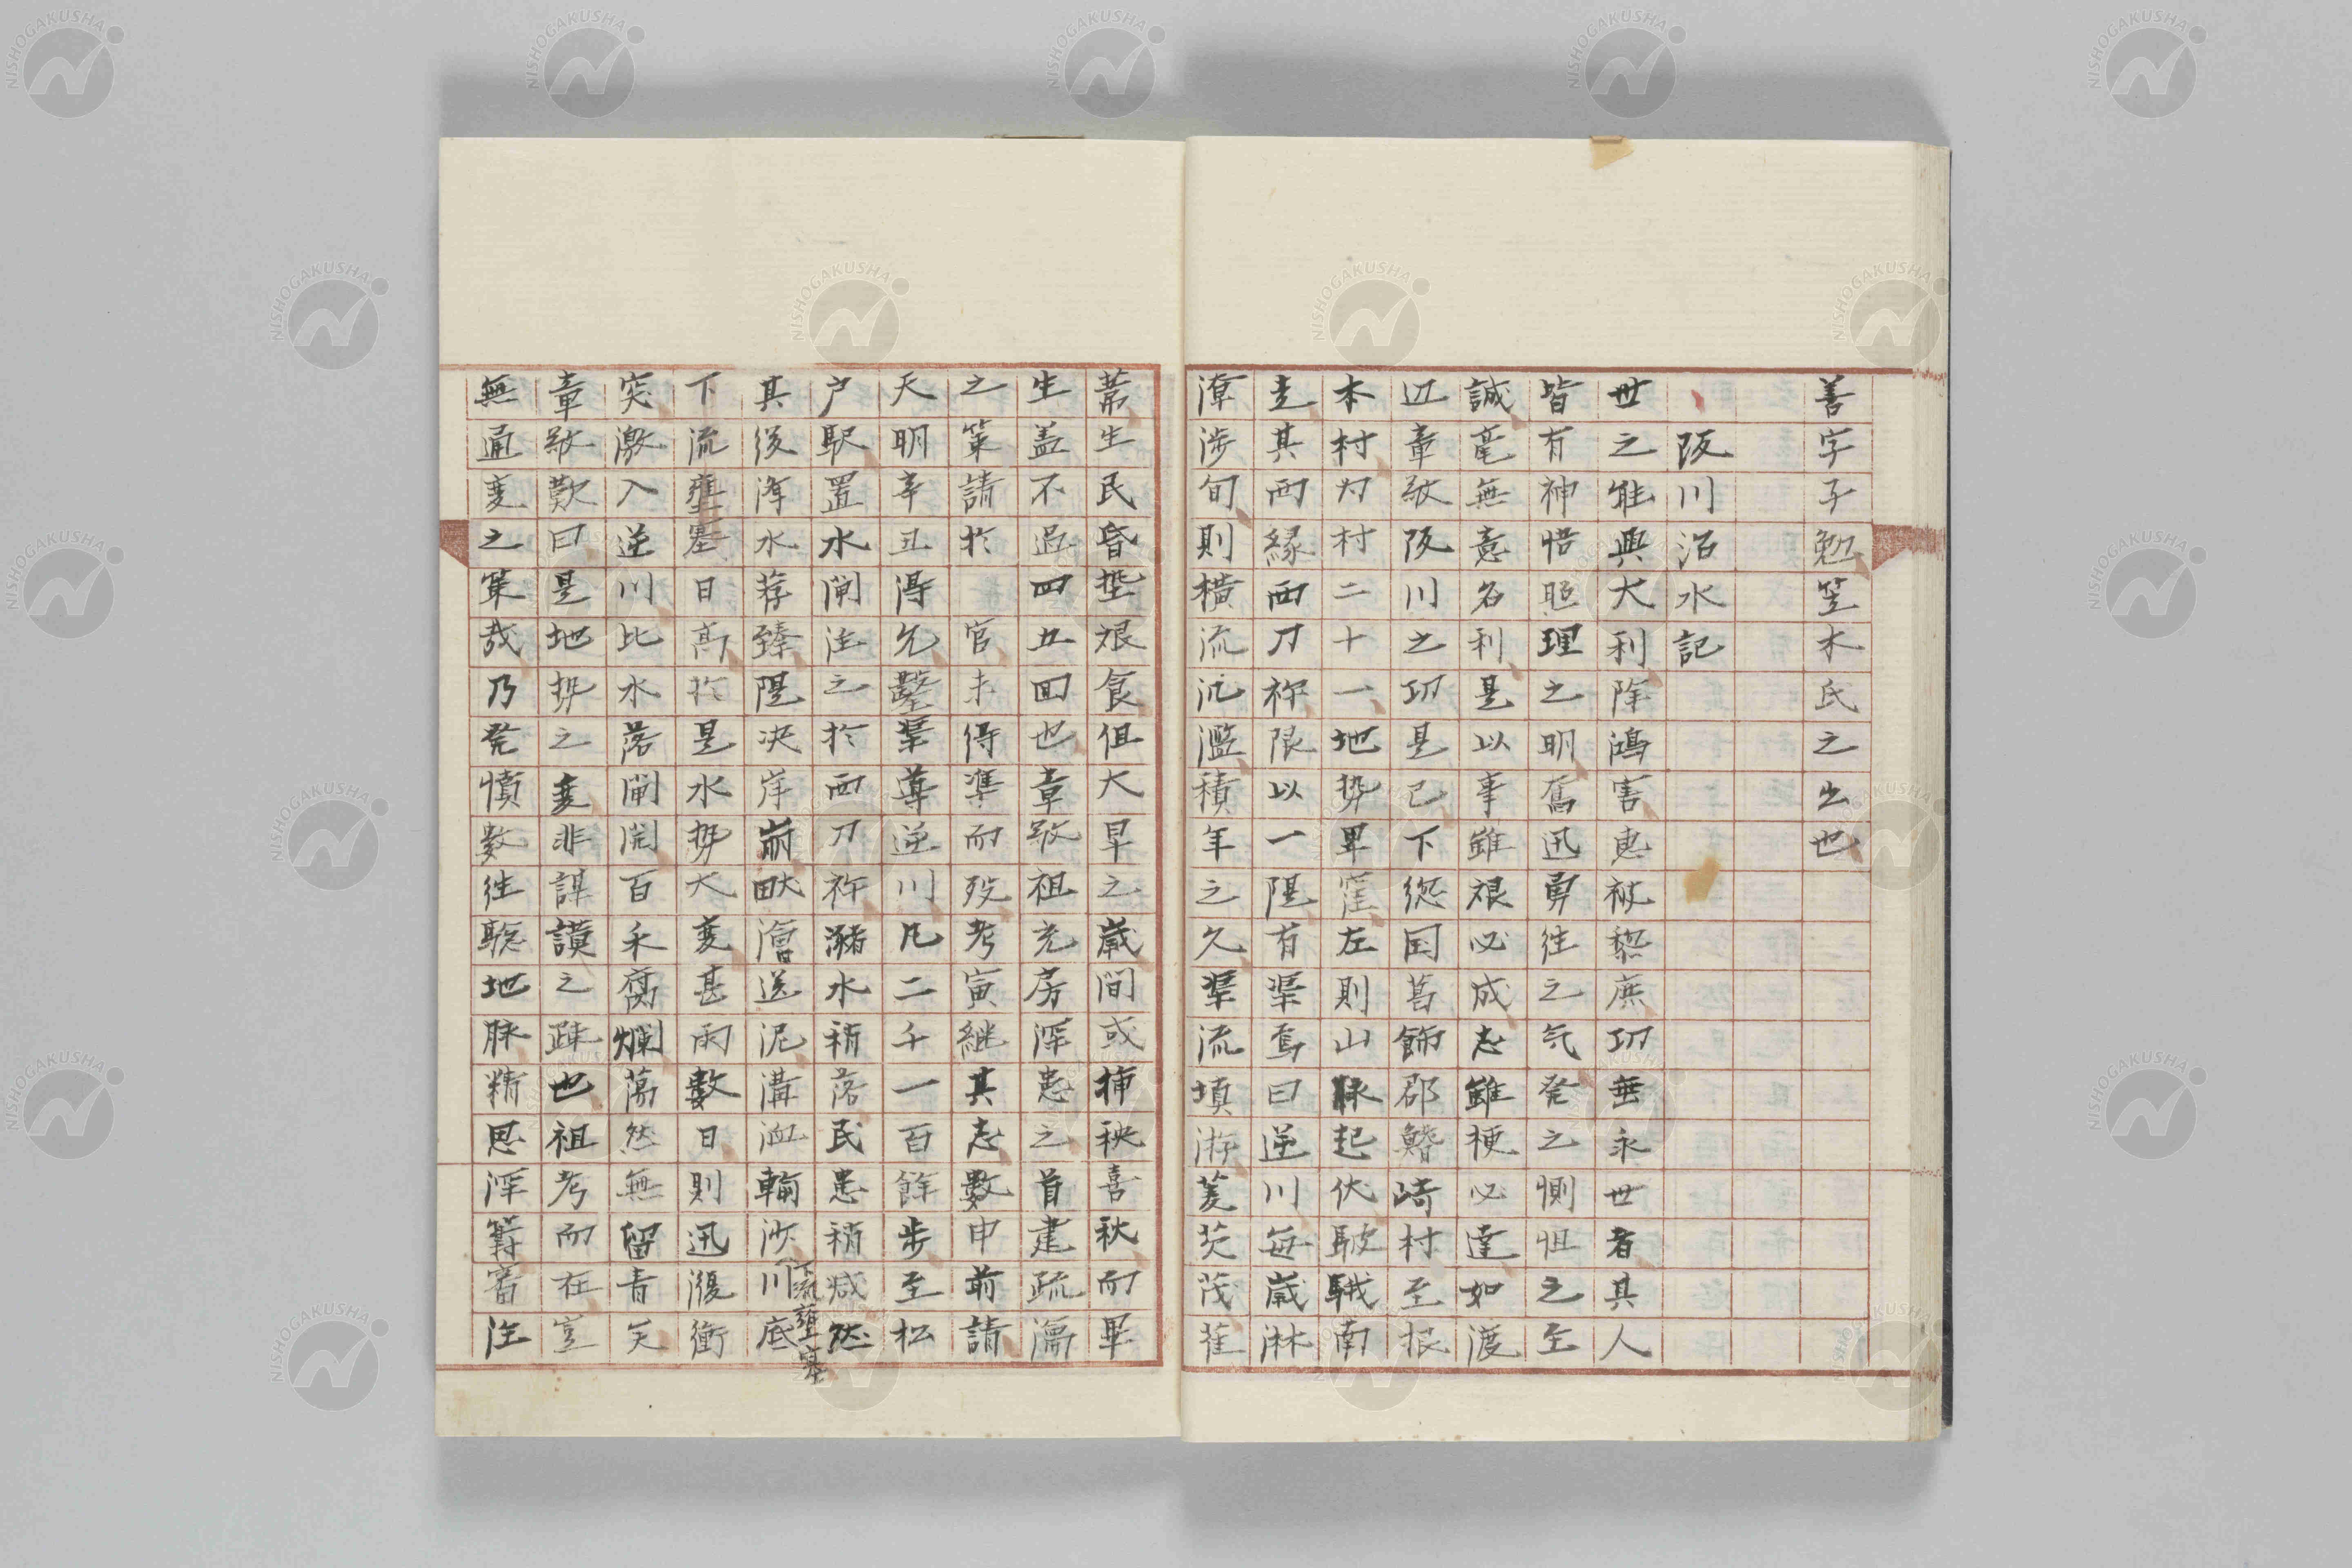 善字子勉笠木氏之出也
阪川治水記
世之能興大利除鴻害恵被黎庶功垂永世者其人
皆有神悟照理之明奮迅勇往之気発之惻怛之至
誠毫無意名利是以事雖艱必成志雖梗必達如渡
辺章敬阪川之功是已下総国葛飾郡鰭崎村至根
本村为村二十一地势卑窪左則山脉起伏駊騀南
走其西縁西刀祢限以一隄有渠焉曰逆川每歳淋
潦涉旬則横流氾濫積年之久渠流填淤菱芡茂萑
葦生民昏垫艱食但大旱之歳間或挿秧喜秋而畢
生盖不過四五回也章敬祖充房深患之首建疏瀹
之策請於官未得準而歿考寅継其志數申前請
天明辛丑得允鑿渠導逆川凡二千一百餘步至松
户駅置水閘注之於西刀祢瀦水稍落民患稍减然
其後洚水荐臻隄决岸崩畎澮送泥溝洫輪沙川底
下流壅塞
下流壅塞日高於是水势大变甚雨數日則迅漲衝
突激入逆川比水落閘開百禾腐爛蕩然無留青矣
章敬歎曰是地势之変非謀謨之疎也祖考而在豈
無通変之策哉乃発憤數往聡地脉精思深籌審注